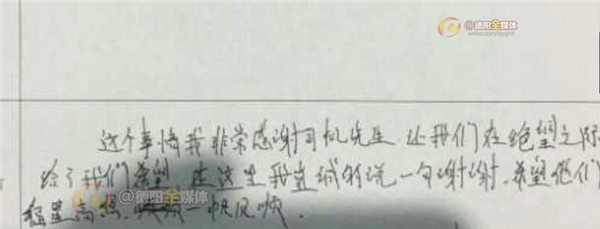 @德阳全媒体
weibo.com/dyqmt
这个事情我非常感谢司机先生.让我们在绝望之际
给了我们希望.在这里我真诚的说一句谢谢.希望他们
福星高照.一帆风顺.
@德阳全媒体